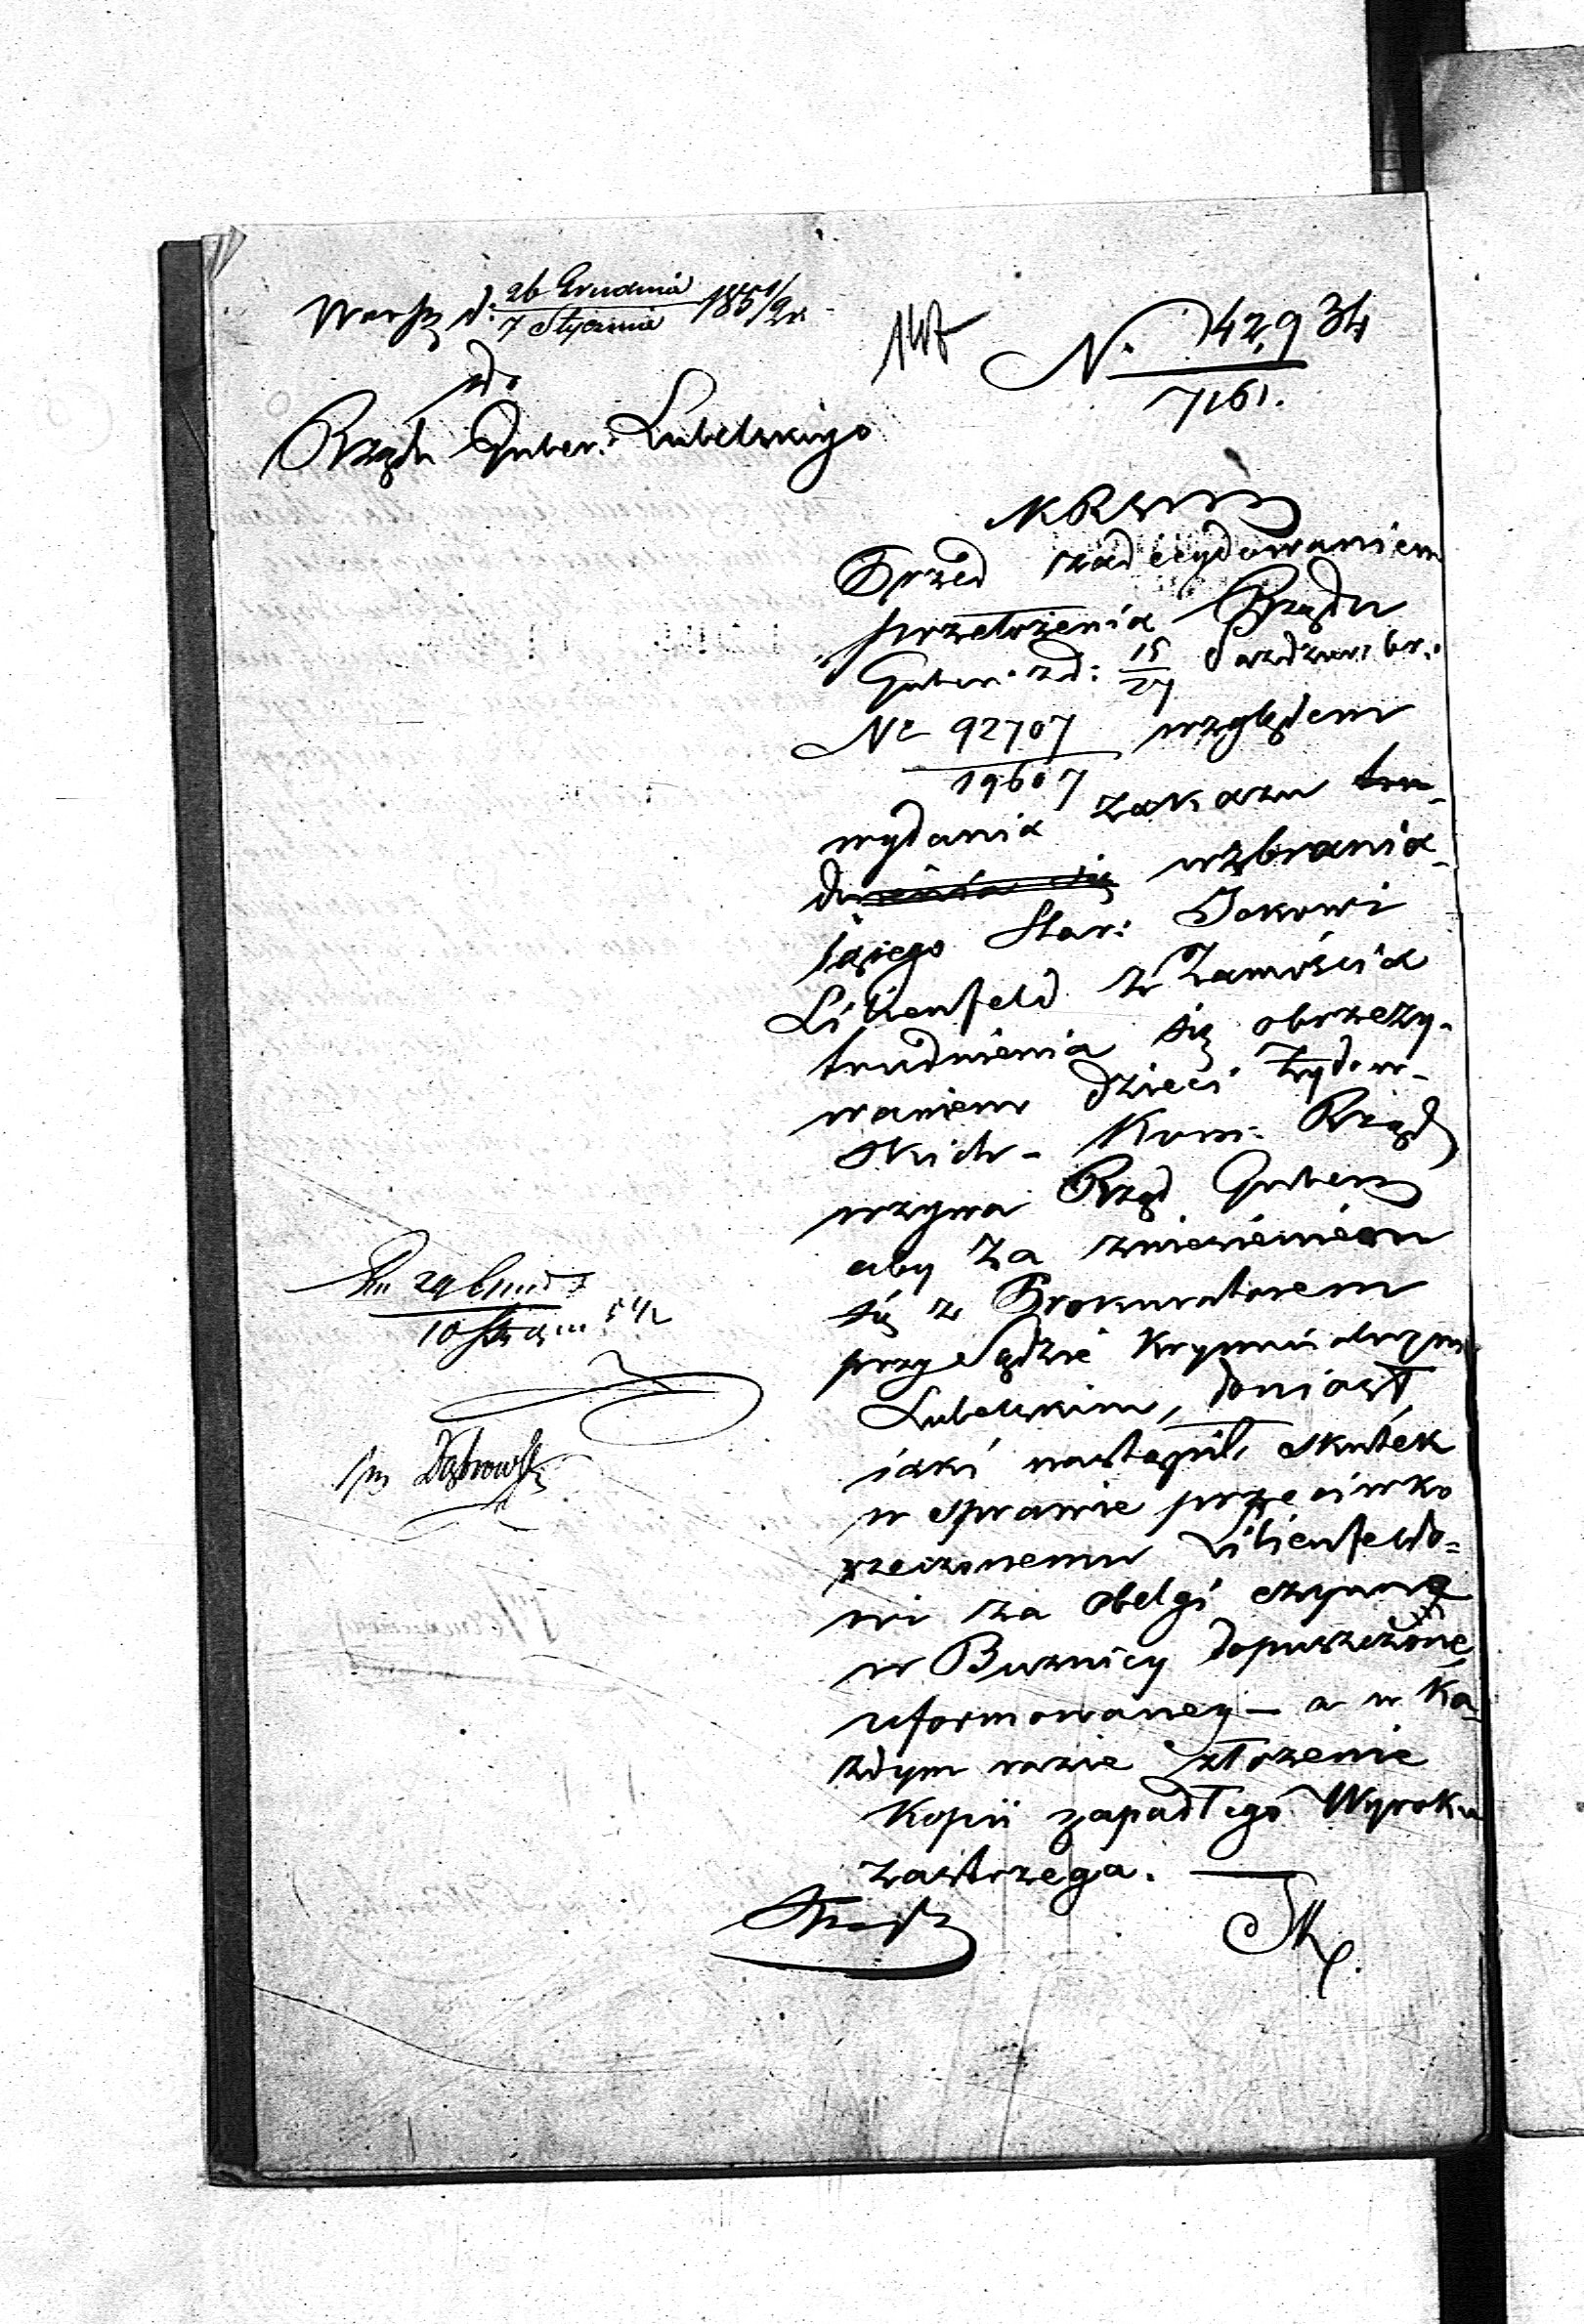 Warsz d. 26 Grudnia / 7 Stycznia 1851/2 r.
147
N. 42,934 / 7161.
do
Rządu Guber: Lubelskiego
KRSW
Przed zadecydowaniem
przełożenia Rządu
Guber. z d: 15/27 Paździer: b.r.
No 92707 / 19607 względem
wydania zakazu tru-
dnienia się wzbrania-
iącego Star: Jokowi
Lilienfeld z Zamościa
trudnienia się obrzezy-
waniem dzieci żydow-
skich - Kom. Rząd
wzywa Rząd Guber
aby za zniesieniem
się z Prokuratorem
przy Sądzie Kryminalnym
Lubelskim, doniósł
iaki nastąpił skutek
w sprawie przeciwko
rzeczonemu Lilienfeldo=
wi za obelgi czynne
w Bużnicy dopuszczone
uformowaney - a w ka-
żdym razie złożenie
Kopii zapadłego Wyroku
zastrzega.
29 Grud / 10 Stycz 51/2
Dąbrowski